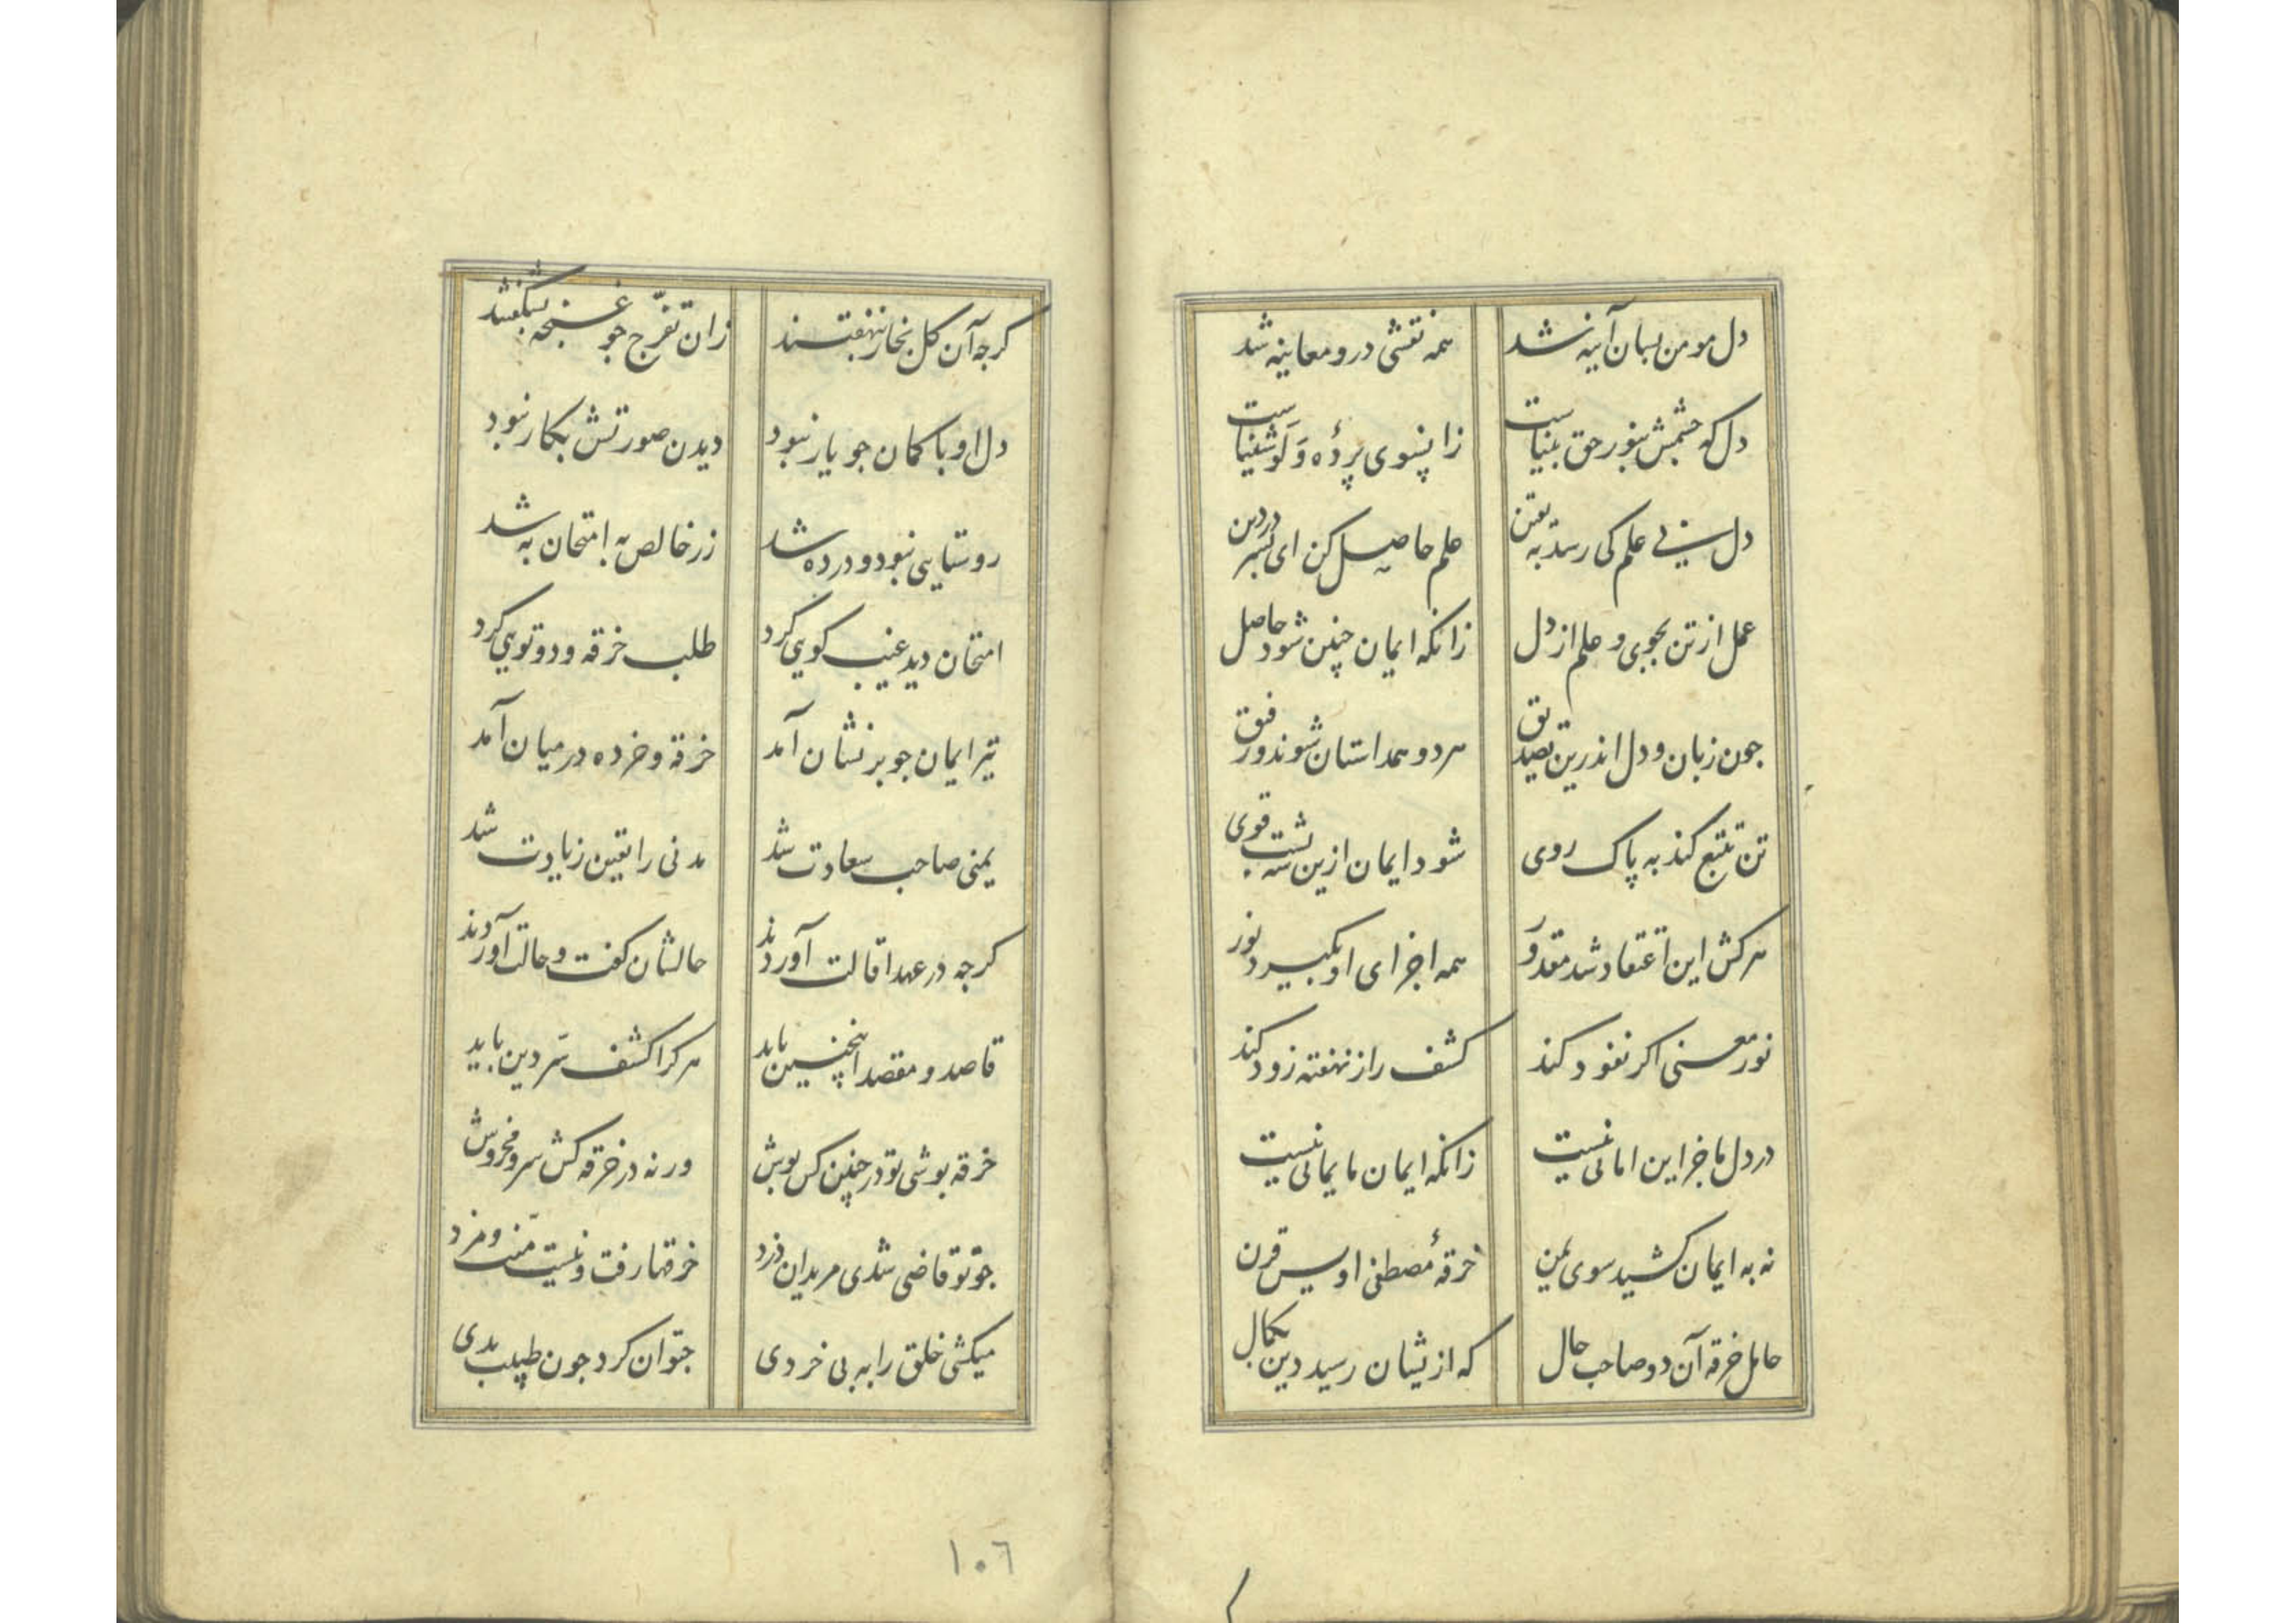 دل مومن بسان آینه شد همه نقشی درو معاینه شد
دل که چشمش بنور حق بیناست زانسوی پردهٔ وَلَو شئناست
دل بی علم کی رسد به یقین علم حاصل کن ای پسر در دین
عمل از تن بجوی و علم از دل زانکه ایمان چنین شود حاصل
جون زبان و دل اندرین تصدیق هر دو همداستان شوند و رفیق
تن تتبع کند به پاک روی شود ایمان ازین سه پشت قوی
هر کش این اعتقاد شد مقدور همه اجزای او بگیرد نور
نور معنی اکر نفود کند کشف راز نهفته زود کند
در دل ما جز این امانی نیست زانکه ایمان ما یمانی نیست
نه به ایمان کشید سوی یمن خرقهٔ مصطفی اویس قرن
حامل خرقه آن دو صاحب حال که ازیشان رسید دین بکمال
کرجه آن کل بخار نهفتند زان تفرّج جو غنجه بشکفتند
دل او با کمان جو یار نبود دیدن صورتش بکار نبود
روستایی نبود و در ده شد زر خالص به امتحان به شد
امتحان دید عیب کویی کرد طلب خرقه و دوتویی کرد
تیر ایمان جو بر نشان آمد خرقه و خرده در میان آمد
یمنی صاحب سعادت شد مدنی را یقین زیادت شد
کرجه در عهد اقالت آوردند حالشان کفت و حالت آوردند
قاصد و مقصد اینچنین باید هر کرا کشف سّر دین باید
خرقه بوشی تو در چنین کس بوش ورنه در خرقه کش سر و مخروش
جو تو قاضی شدی مریدان دزد خرقها رفت و نیست منّت و مزد
میکشی خلق را به بی خردی جتوان کرد جون طبیب بدی
١٠٦